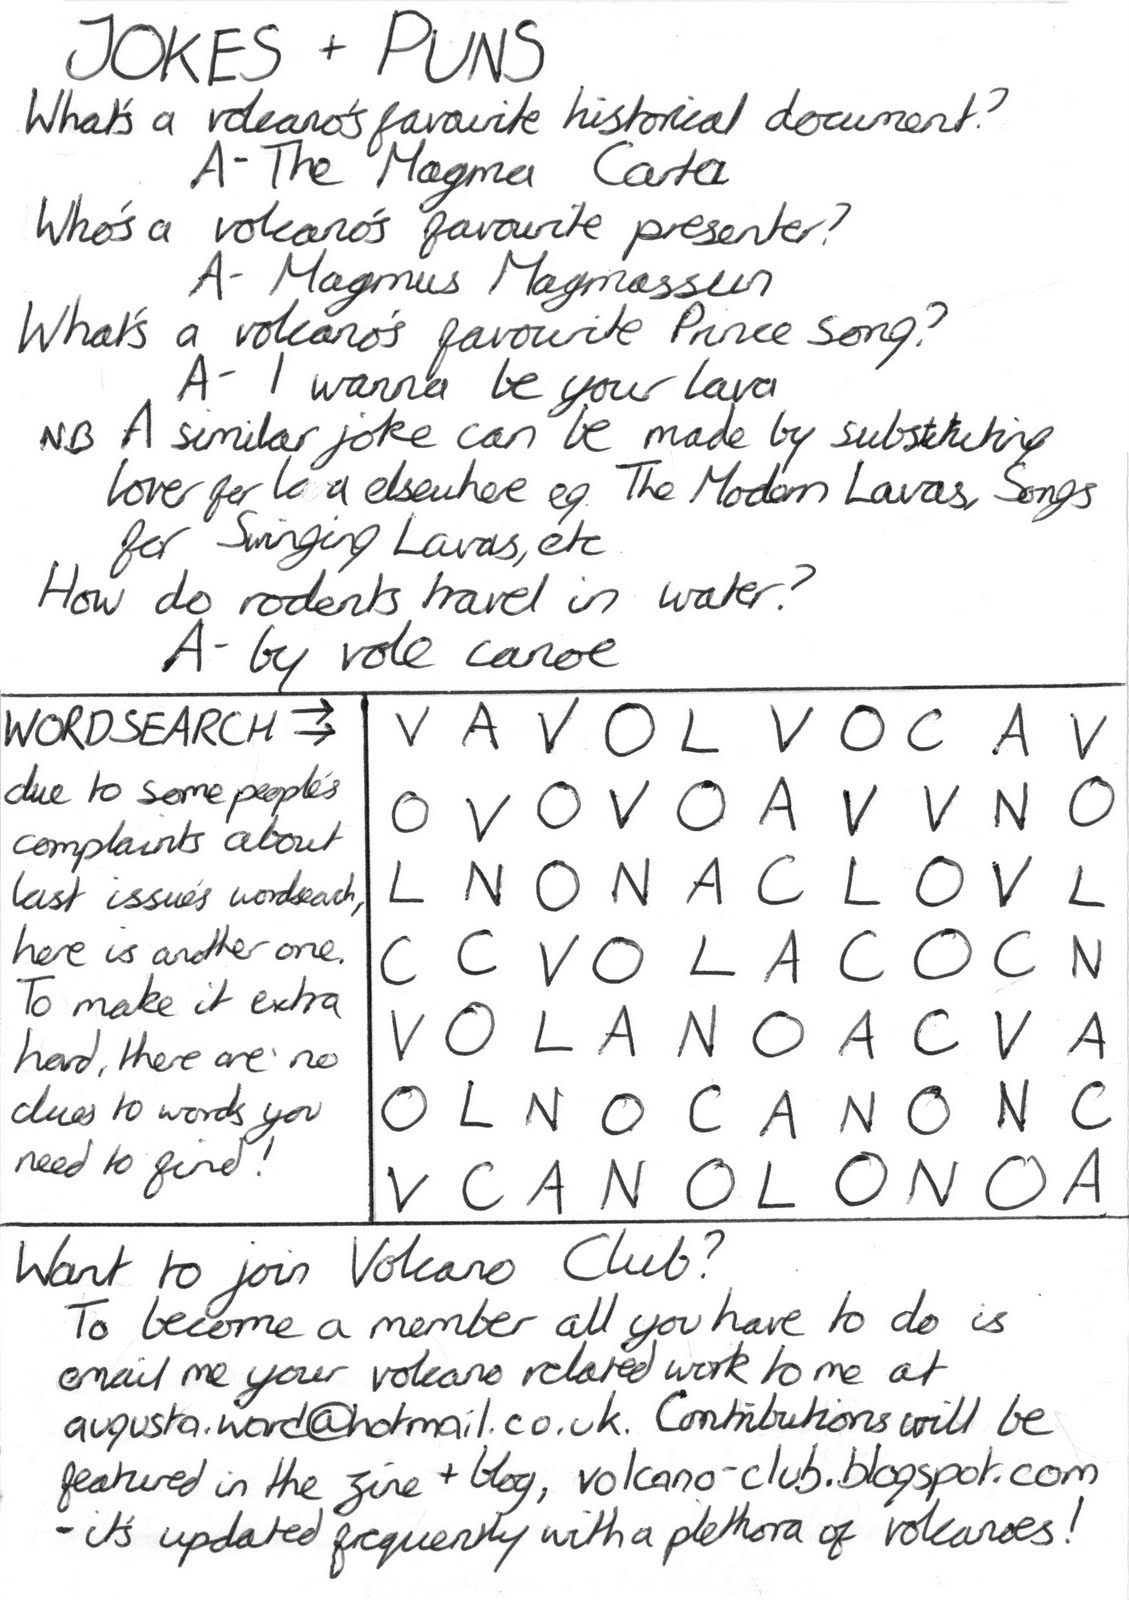 JOKES + PUNS
What's a volcano's favourite historical document?
A- The Magma Carta
Who's a volcano's favourite presenter?
A- Magmus Magmassun
What's a volcano's favourite Prince song?
A- I wanna be your lava
NB A similar joke can be made by substituting
lover for la a elsewhere eg. The Modern Lavas, Songs
for Swinging Lavas, etc
How do rodents travel in water?
A- by vole canoe
WORDSEARCH ⇉
due to some people's
complaints about
last issue's wordseach,
here is another one.
To make it extra
hard, there are no
clues to words you
need to find!
V A V O L V O C A V
O V O V O A V V N O
L N O N A C L O V L
C C V O L A C O C N
V O L A N O A C V A
O L N O C A N O N C
V C A N O L O N O A
Want to join Volcano Club?
To become a member all you have to do is
email me your volcano related work to me at
augusta.ward@hotmail.co.uk. Contributions will be
featured in the zine + blog, volcano-club.blogspot.com
- it's updated frequently with a plethora of volcanoes!